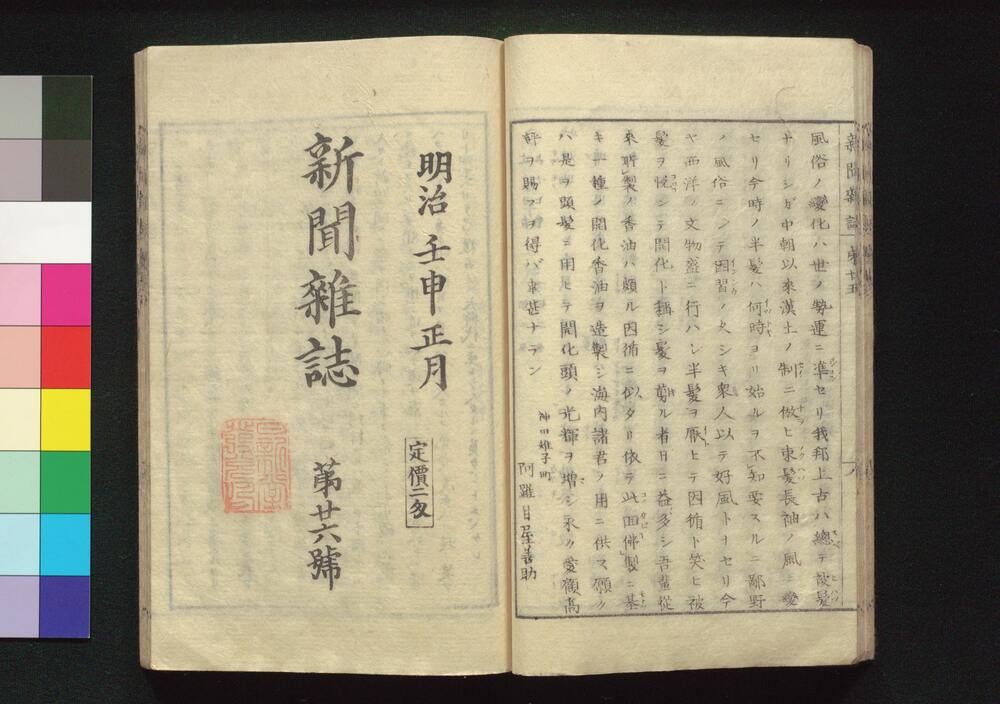 新聞雜誌 第廿五 八
風俗ノ變化ハ世ノ勢運ニ準セリ我邦上古ハ總テ披髮
ナリシガ中朝以來漢土ノ制ニ倣ヒ束髮長袖ノ風ニ變
セリ今時ノ半髮ハ何時ヨリ始ルヲ不知要スルニ鄙野
ノ風俗ニシテ因習ノ久シキ衆人以テ好風トナセリ今
ヤ西洋ノ文物盛ニ行ハレ半髮ヲ厭ヒテ因循ト笑ヒ被
髮ヲ悦シテ開化ト稱シ髮ヲ剪ル者日ニ益多シ吾輩從
來所製ノ香油ハ頗ル因循ニ似タリ依テ此回佛製ニ基
キ一種ノ開化香油ヲ造製シ海内諸君ノ用ニ供ス願クハ
是ヲ頭髮ニ用ヒテ開化頭ノ光輝ヲ増シ永ク愛顧高
評ヲ賜フヲ得バ幸甚ナラン
神田雉子町
阿羅目屋善助
明治壬申正月
定價二匁
新聞雜誌 第廿六號